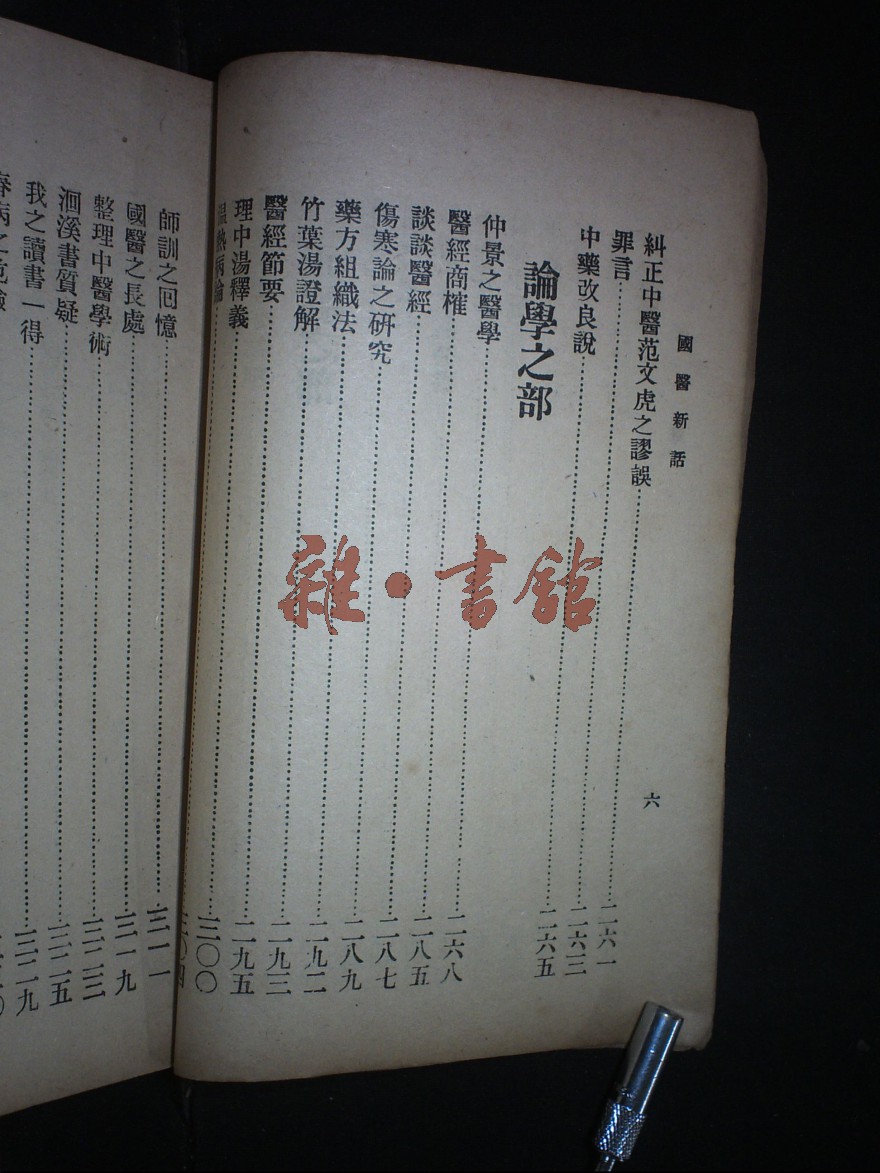 國醫新話 六
糾正中醫范文虎之謬誤……二六一
罪言……二六三
中藥改良說……二六五
論學之部
仲景之醫學……二六八
醫經商榷……二八五
談談醫經……二八七
傷寒論之研究……二八九
藥方組織法……二九二
竹葉湯證解……二九三
醫經節要……二九五
理中湯釋義……三〇〇
溫熱病論……三〇四
師訓之回憶……三一一
國醫之長處……三一九
整理中醫學術……三二三
洄溪書質疑……三二五
我之讀書一得……三二九
病之危險
雜·書館